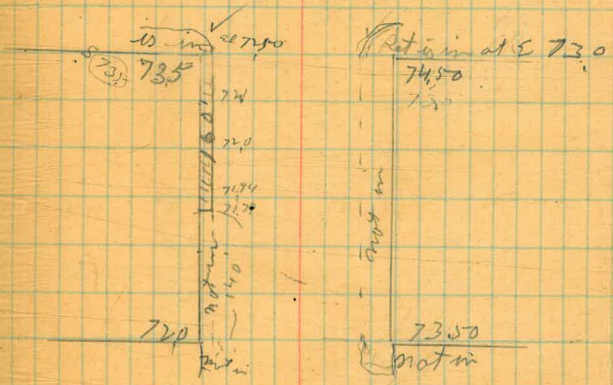 is in at 72.50
73.5 73.5
72.1
72.0
71.94
71.7
not in
140
72.0
not in
Ret is in at E 73.0
74.50
73.0
not in
73.50
not in